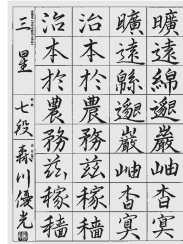 曠遠綿邈巖岫杳冥
曠遠緜邈巖岫杳冥
治本於農務茲稼穡
治本於農務茲稼穡
三星 七段 森川優光